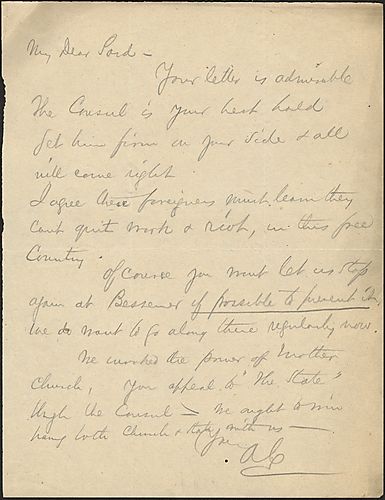 My Dear Lord —
Your letter is admirable
The Consul is your best hold
Get him firm on your side & all
will come right
I agree these foreigners must learn they
can't quit work & riot, in this free
Country
Of course you wont let us stop
again at Bessemer if possible to prevent it,
we do want to go along there regularly now
We invoked the power of "Mother
Church," you appeal to "The State"
thro the Consul — We ought to win
having both Church & State with us —
Yours
AC